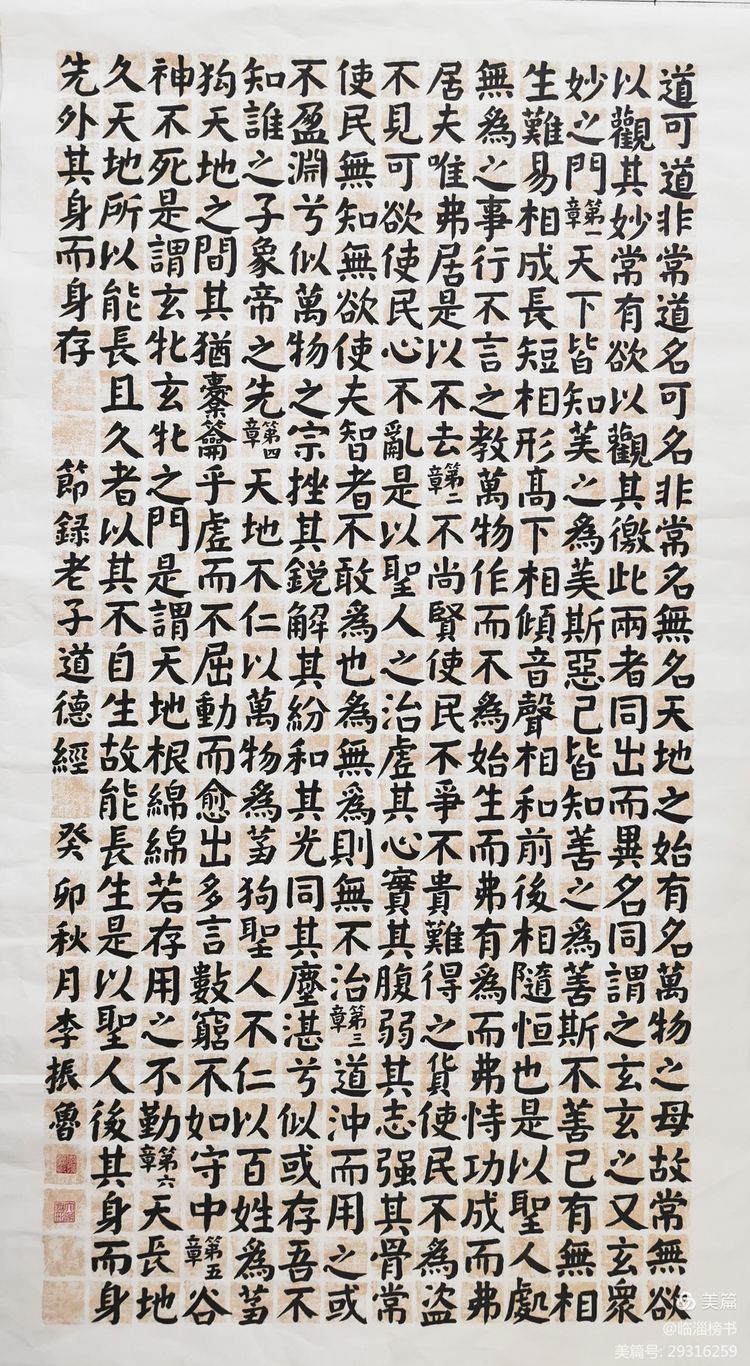 道可道非常道名可名非常名無名天地之始有名萬物之母故常無欲
以觀其妙常有欲以觀其徼此兩者同出而異名同謂之玄玄之又玄衆
妙之門第一章天下皆知美之為美斯惡己皆知善之為善斯不善己有無相
生難易相成長短相形高下相傾音聲相和前後相隨恒也是以聖人處
無為之事行不言之教萬物作而不為始生而弗有為而弗恃功成而弗
居夫唯弗居是以不去第二章不尚賢使民不爭不貴難得之貨使民不為盜
不見可欲使民心不亂是以聖人之治虛其心實其腹弱其志强其骨常
使民無知無欲使夫智者不敢為也為無為則無不治第三章道沖而用之或
不盈淵兮似萬物之宗挫其鋭解其紛和其光同其塵湛兮似或存吾不
知誰之子象帝之先第四章天地不仁以萬物為芻狗聖人不仁以百姓為芻
狗天地之間其猶橐籥乎虛而不屈動而愈出多言數窮不如守中第五章谷
神不死是謂玄牝玄牝之門是謂天地根綿綿若存用之不勤第六章天長地
久天地所以能長且久者以其不自生故能長生是以聖人後其身而身
先外其身而身存 節録老子道德經 癸卯秋月李振魯
美篇
@临淄榜书
美篇号: 29316259